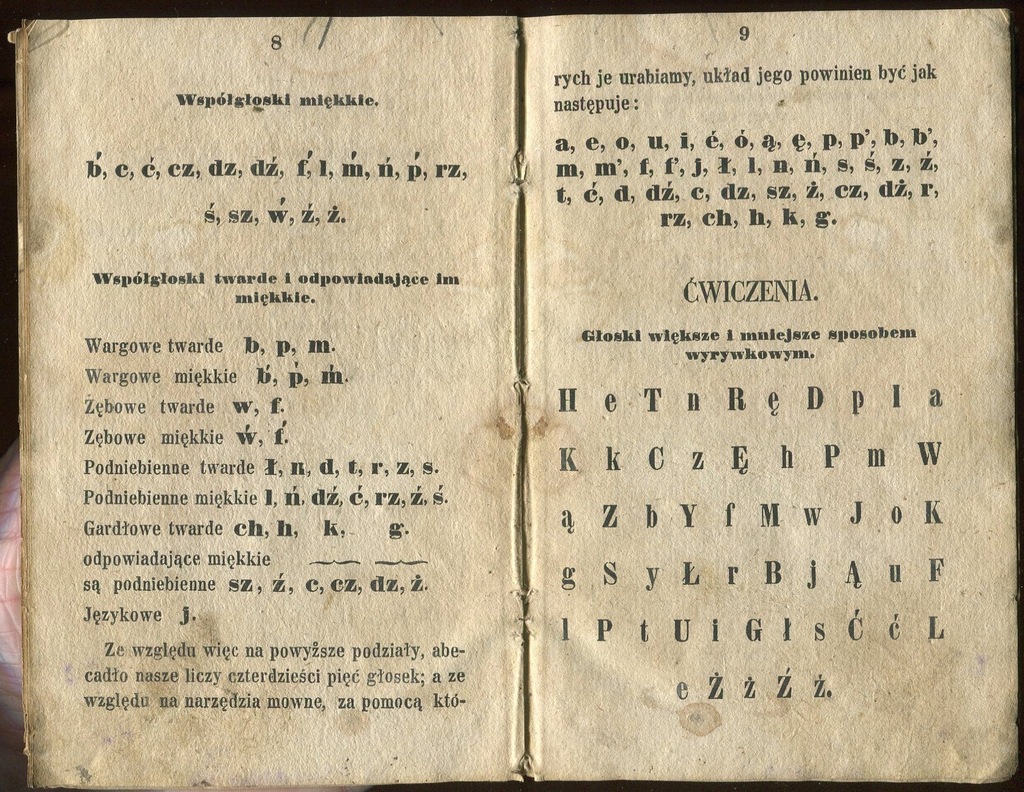 8
Współgłoski miękkie.
b́, c, ć, cz, dz, dź, f́, l, ḿ, ń, ṕ, rz,
ś, sz, ẃ, ź, ż.
Współgłoski twarde i odpowiadające im
miękkie.
Wargowe twarde b, p, m.
Wargowe miękkie b́, ṕ, ḿ.
Zębowe twarde w, f.
Zębowe miękkie ẃ, f́.
Podniebienne twarde ł, n, d, t, r, z, s.
Podniebienne miękkie l, ń, dź, ć, rz, ź, ś.
Gardłowe twarde ch, h, k, g.
odpowiadające miękkie
są podniebienne sz, ź, c, cz, dz, ż.
Językowe j.
Ze względu więc na powyższe podziały, abe-
cadło nasze liczy czterdzieści pięć głosek; a ze
względu na narzędzia mowne, za pomocą któ-
9
rych je urabiamy, układ jego powinien być jak
następuje:
a, e, o, u, i, é, ó, ą, ę, p, p', b, b',
m, m', f, f', j, ł, l, n, ń, s, ś, z, ź,
t, ć, d, dź, c, dz, sz, ż, cz, dż, r,
rz, ch, h, k, g.
ĆWICZENIA.
Głoski większe i mniejsze sposobem
wyrywkowym.
H e T n R ę D p l a
K k C z Ę h P m W
ą Z b Y f M w J o K
g S y Ł r B j Ą u F
l P t U i G ł s Ć ć L
e Ż ż Ź ź.